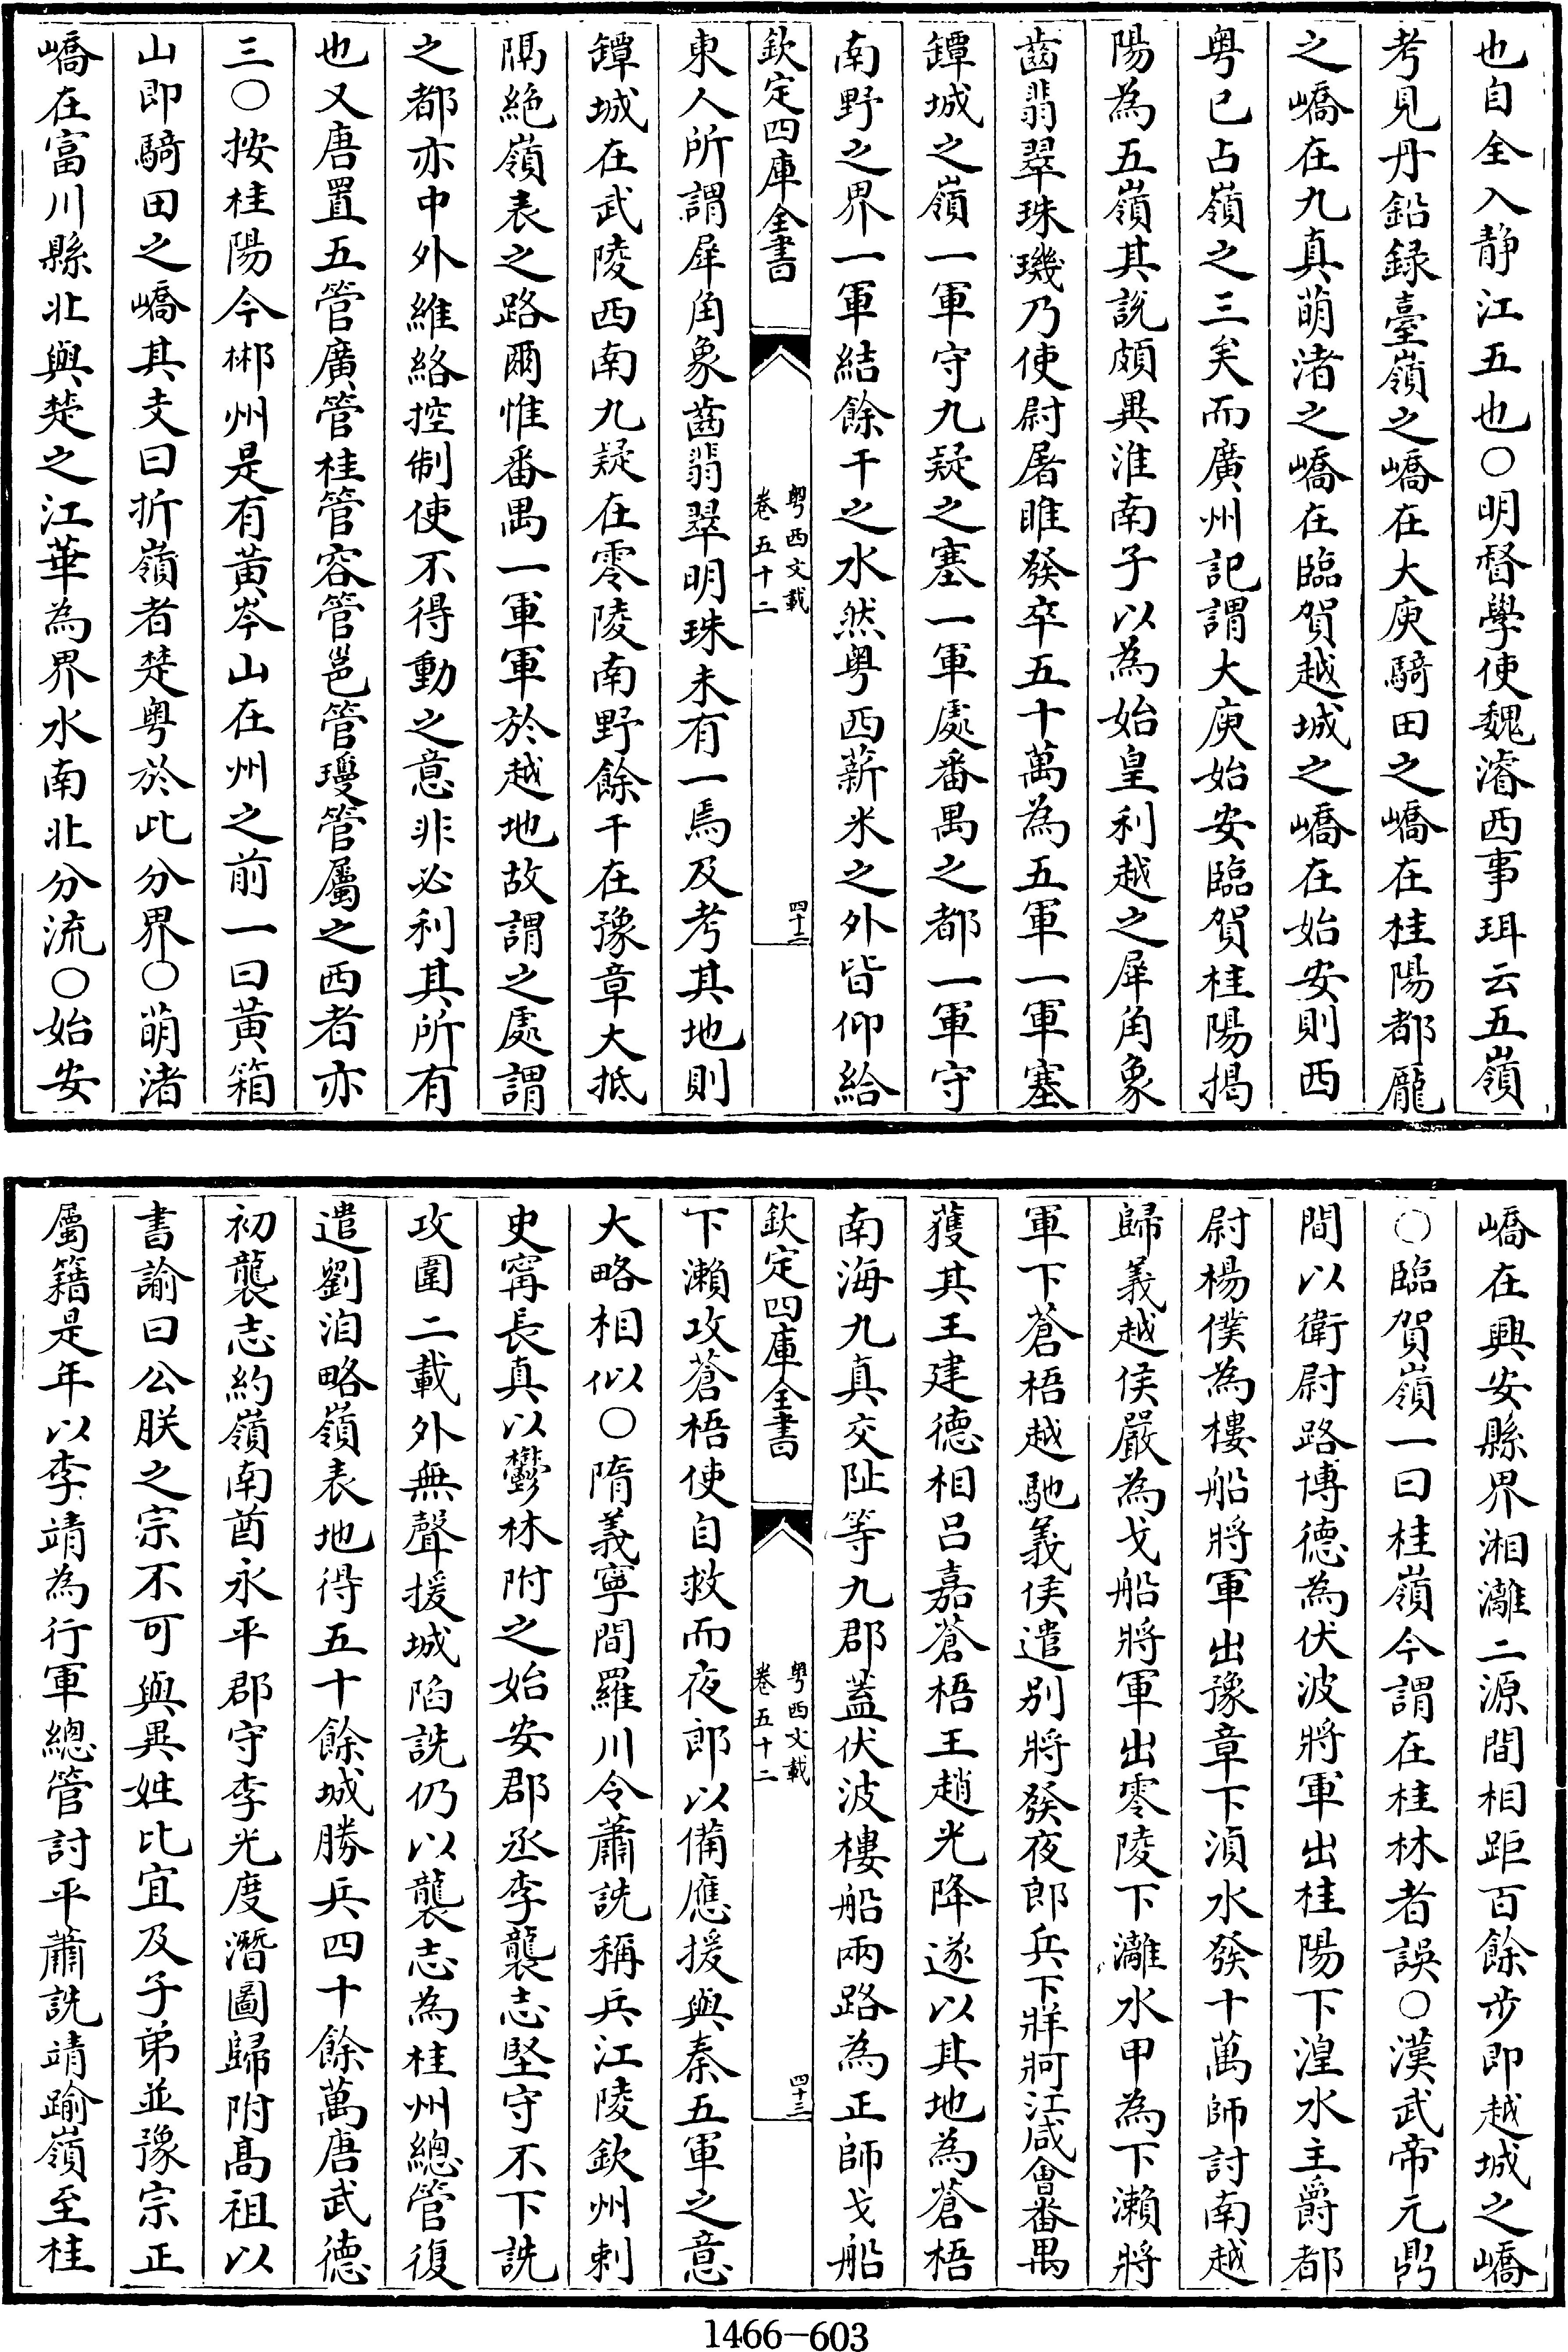 也自全入静江五也○明督學使魏濬西事珥云五嶺
考見丹鉛録臺嶺之嶠在大庾騎田之嶠在桂陽都龎
之嶠在九真萌渚之嶠在臨賀越城之嶠在始安則西
粤已占嶺之三矣而廣州記謂大庾始安臨賀桂陽揭
陽為五嶺其說頗異淮南子以為始皇利越之犀角象
齒翡翠珠璣乃使尉屠睢發卒五十萬為五軍一軍塞
鐔城之嶺一軍守九疑之塞一軍處番禺之都一軍守
南野之界一軍結餘干之水然粤西薪米之外皆仰給
欽定四庫全書
粤西文載
卷五十二
四十二
東人所謂犀角象齒翡翠明珠未有一焉及考其地則
鐔城在武陵西南九疑在零陵南野餘干在豫章大抵
隔絶嶺表之路爾惟番禺一軍軍於越地故謂之處謂
之都亦中外維絡控制使不得動之意非必利其所有
也又唐置五管廣管桂管容管邕管瓊管屬之西者亦
三○按桂陽今郴州是有黄岑山在州之前一曰黄箱
山即騎田之嶠其支曰折嶺者楚粤於此分界○萌渚
嶠在富川縣北與楚之江華為界水南北分流○始安
嶠在興安縣界湘灕二源間相距百餘步即越城之嶠
○臨賀嶺一曰桂嶺今謂在桂林者誤○漢武帝元鼎
間以衛尉路博德為伏波將軍出桂陽下湟水主爵都
尉楊僕為樓船將軍出豫章下湞水發十萬師討南越
歸義越侯嚴為戈船將軍出零陵下灕水甲為下瀨將
軍下蒼梧越馳義侯遣别將發夜郎兵下牂牁江咸會番禺
獲其王建德相吕嘉蒼梧王趙光降遂以其地為蒼梧
南海九真交阯等九郡蓋伏波樓船兩路為正師戈船
欽定四庫全書
粤西文載
卷五十二
四十三
下瀨攻蒼梧使自救而夜郎以備應援與秦五軍之意
大略相似○隋義寧間羅川令蕭詵稱兵江陵欽州刺
史甯長真以鬱林附之始安郡丞李襲志堅守不下詵
攻圍二載外無聲援城陷詵仍以襲志為桂州總管復
遣劉洎略嶺表地得五十餘城勝兵四十餘萬唐武德
初襲志約嶺南酋永平郡守李光度潛圖歸附髙祖以
書諭曰公朕之宗不可與異姓比宜及子弟並豫宗正
屬籍是年以李靖為行軍總管討平蕭詵靖踰嶺至桂
1466-603